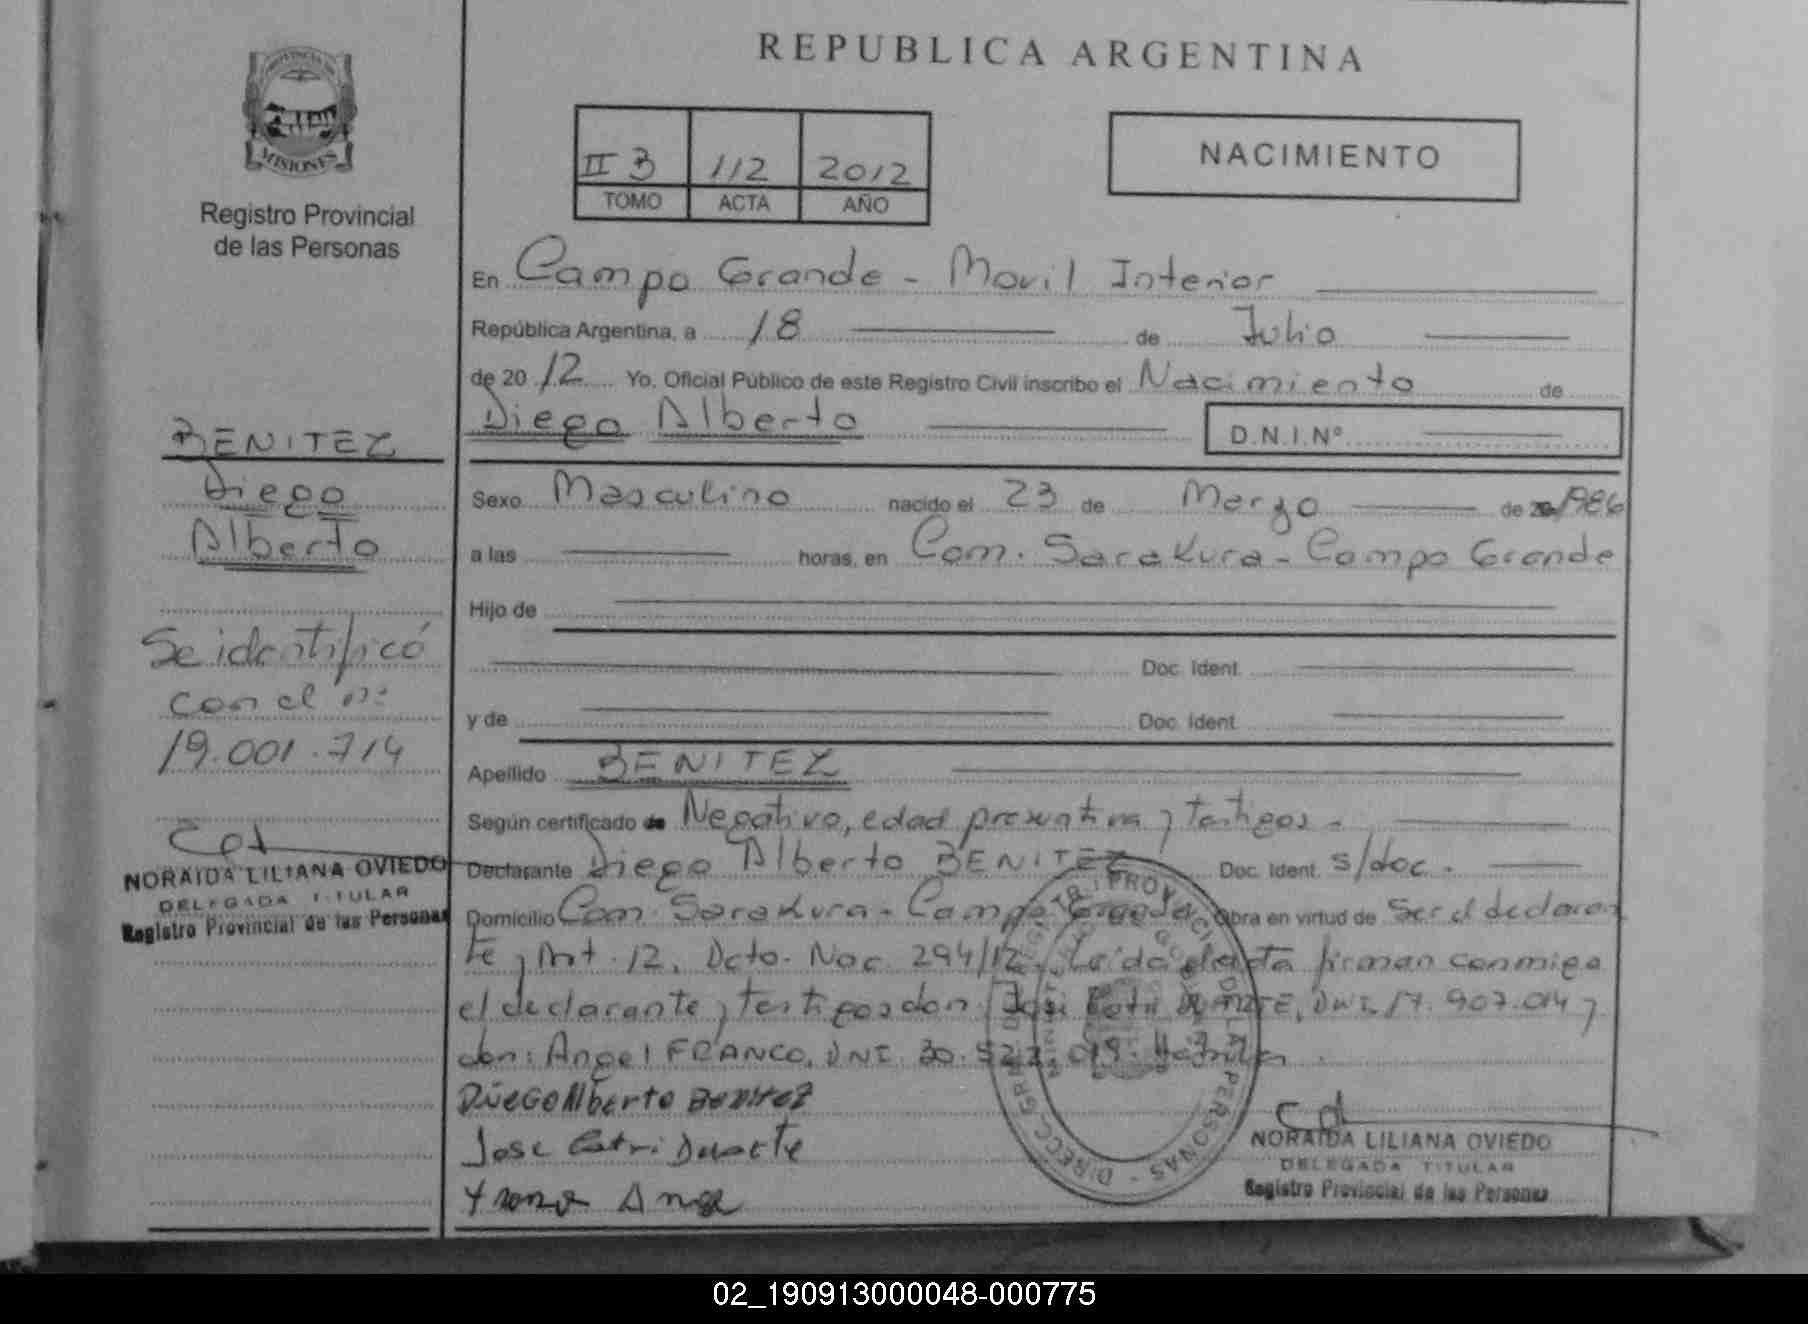 REPUBLICA ARGENTINA
MISIONES
Registro Provincial
de las Personas
II 3 112 2012
TOMO ACTA AÑO
NACIMIENTO
En Campo Grande - Movil Interior
República Argentina, a 18 de Julio
de 20 12 Yo, Oficial Público de este Registro Civil inscribo el Nacimiento de
Diego Alberto D.N.I.Nº
Sexo Masculino nacido el 23 de Marzo de 1986
a las horas, en Com. Sarakura - Campo Grande
Hijo de
Doc. Ident.
y de Doc. Ident.
Apellido BENITEZ
Según certificado de Negativo, edad presuntiva y testigos.
Declarante Diego Alberto BENITEZ Doc. Ident. s/doc.
Domicilio Com. Sarakura - Campo Grande Obra en virtud de Ser el declaran
te y Art. 12. Dcto. Nac. 294/12. Leida el acta firman conmigo
el declarante y testigos don: José DUARTE, DNI. 17.907.014 y
don: Angel FRANCO, DNI. 30.
Diego Alberto Benitez
Jose Duarte
NORAIDA LILIANA OVIEDO
DELEGADA TITULAR
Registro Provincial de las Personas
BENITEZ
Diego
Alberto
Se identificó
con el nº
19.001.714
NORAIDA LILIANA OVIEDO
DELEGADA TITULAR
Registro Provincial de las Personas
02_190913000048-000775